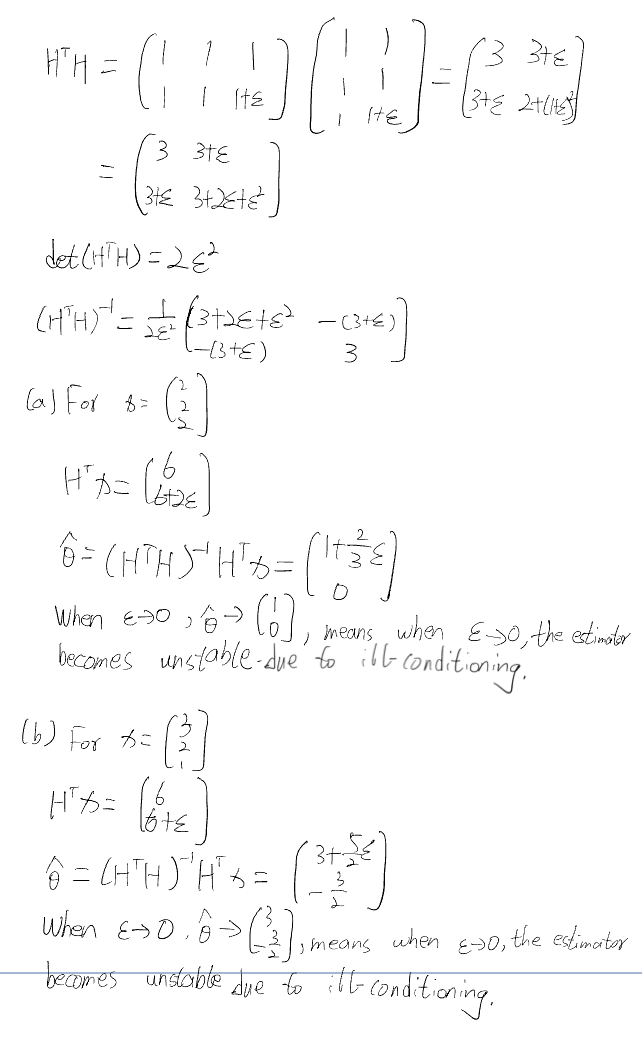 HᵀH = (1 1 1; 1 1 1+ε) (1 1; 1 1; 1 1+ε) = (3 3+ε; 3+ε 2+(1+ε)²)
= (3 3+ε; 3+ε 3+2ε+ε²)
det(HᵀH) = 2ε²
(HᵀH)⁻¹ = 1/2ε² (3+2ε+ε² -(3+ε); -(3+ε) 3)
(a) For x = (2; 2; 2)
Hᵀx = (6; 6+2ε)
θ̂ = (HᵀH)⁻¹Hᵀx = (1+2/3 ε; 0)
When ε→0, θ̂→(1; 0), means when ε→0, the estimator
becomes unstable due to ill-conditioning.
(b) For x = (3; 2; 1)
Hᵀx = (6; 6+ε)
θ̂ = (HᵀH)⁻¹Hᵀx = (3+5/2 ε; -3/2)
When ε→0, θ̂→(3; -3/2), means when ε→0, the estimator
becomes unstable due to ill-conditioning.